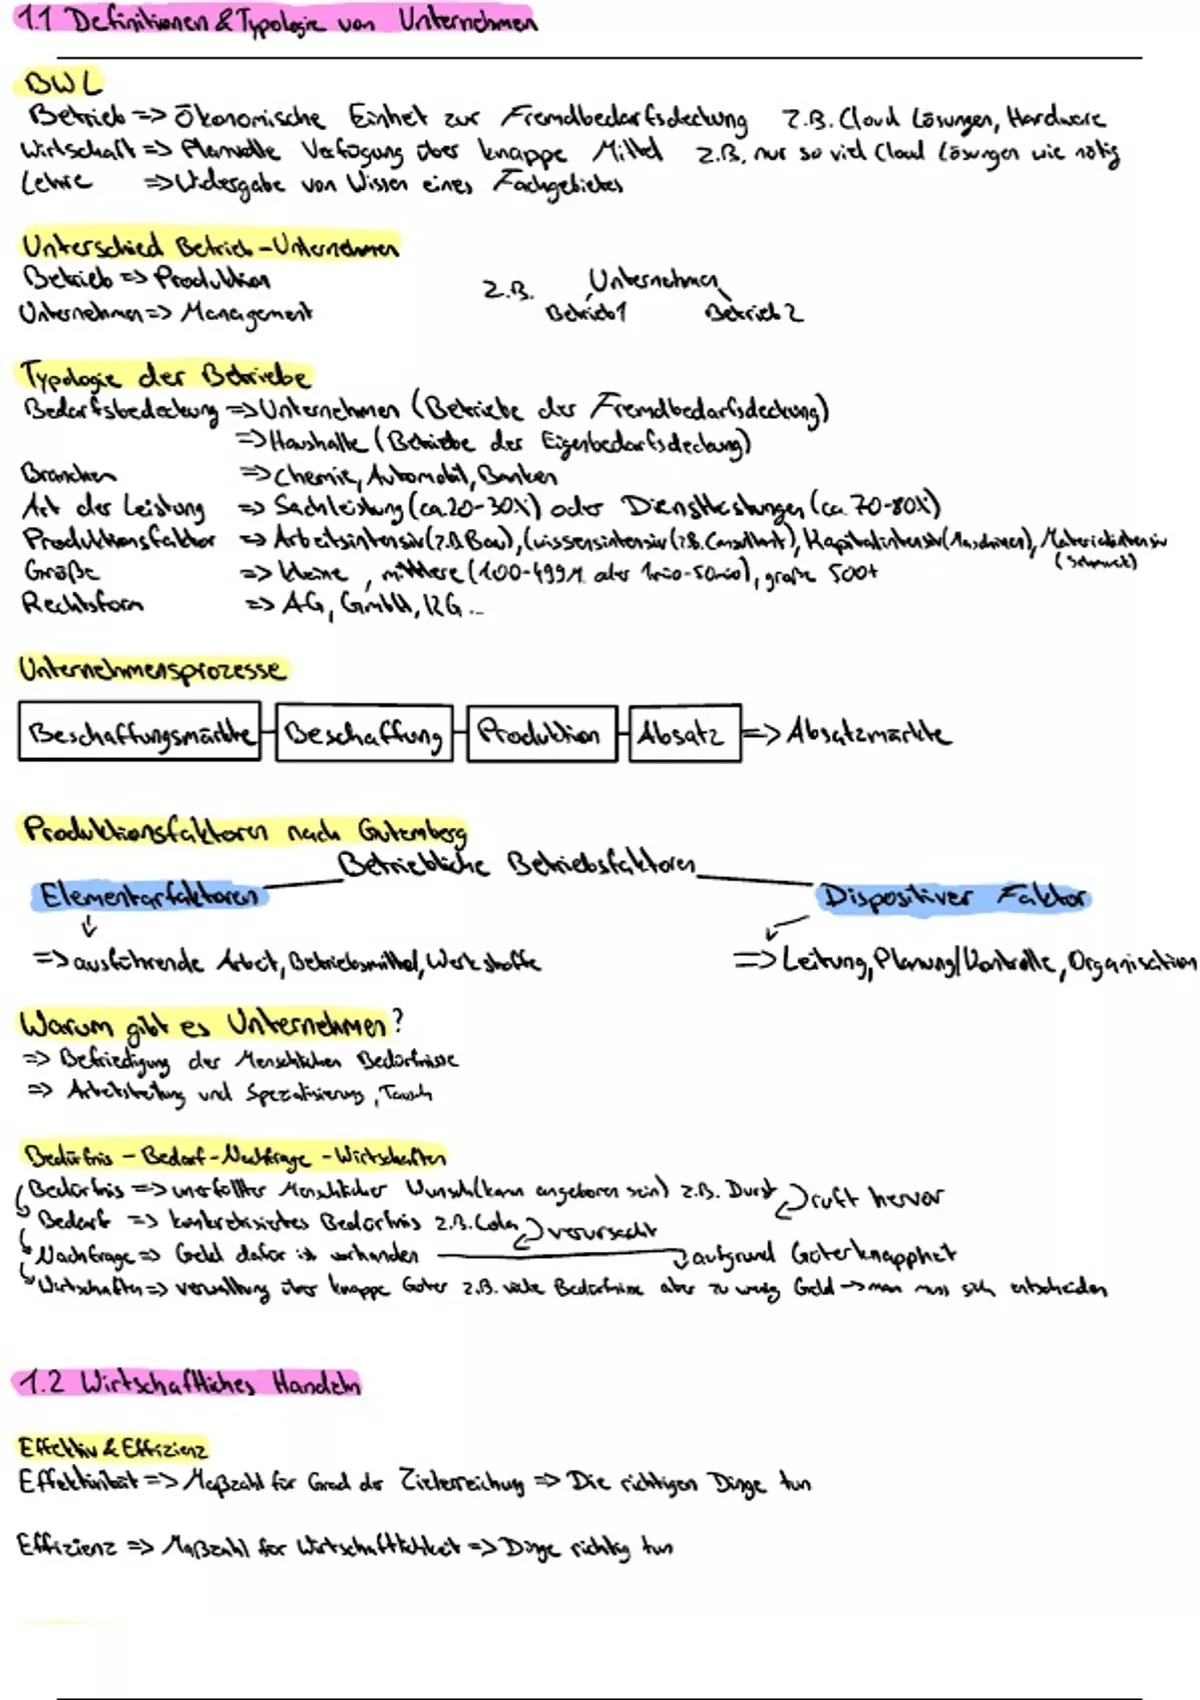 1.1 Definitionen & Typologie von Unternehmen
BWL
Betrieb => Ökonomische Einheit zur Fremdbedarfsdeckung z.B. Cloud Lösungen, Hardware
Wirtschaft => Planvolle Verfügung über knappe Mittel z.B. nur so viel Cloud Lösungen wie nötig
Lehre => Widergabe von Wissen eines Fachgebietes
Unterschied Betrieb - Unternehmen
Betrieb => Produktion
Unternehmen => Management
z.B. Unternehmen
Betrieb 1 Betrieb 2
Typologie der Betriebe
Bedarfsbedeckung => Unternehmen (Betriebe der Fremdbedarfsdeckung)
=> Haushalte (Betriebe der Eigenbedarfsdeckung)
Branchen => Chemie, Automobil, Banken
Art der Leistung => Sachleistung (ca. 20-30%) oder Dienstleistungen (ca. 70-80%)
Produktionsfaktor => Arbeitsintensiv (z.B. Bau), Wissensintensiv (z.B. Consultant), Kapitalintensiv (Maschinen), Materialintensiv
(Schmuck)
Größe => kleine, mittlere (100-499M. oder 1mio-50mio), große 500+
Rechtsform => AG, GmbH, KG...
Unternehmensprozesse
Beschaffungsmärkte Beschaffung Produktion Absatz => Absatzmärkte
Produktionsfaktoren nach Gutemberg
Betriebliche Betriebsfaktoren
Elementarfaktoren Dispositiver Faktor
=> ausführende Arbeit, Betriebsmittel, Werkstoffe => Leitung, Planung/Kontrolle, Organisation
Warum gibt es Unternehmen?
=> Befriedigung der Menschlichen Bedürfnisse
=> Arbeitsteilung und Spezialisierung, Tausch
Bedürfnis - Bedarf - Nachfrage - Wirtschaften
Bedürfnis => unerfüllter Menschlicher Wunsch (kann angeboren sein) z.B. Durst ruft hervor
Bedarf => konkretisiertes Bedürfnis z.B. Cola verursacht
Nachfrage => Geld dafür ist vorhanden aufgrund Güterknappheit
Wirtschaften => verwaltung über knappe Güter z.B. viele Bedürfnisse aber zu wenig Geld -> man muss sich entscheiden
1.2 Wirtschaftliches Handeln
Effektiv & Effizienz
Effektivität => Maßzahl für Grad der Zielerreichung => Die richtigen Dinge tun
Effizienz => Maßzahl für Wirtschaftlichkeit => Dinge richtig tun